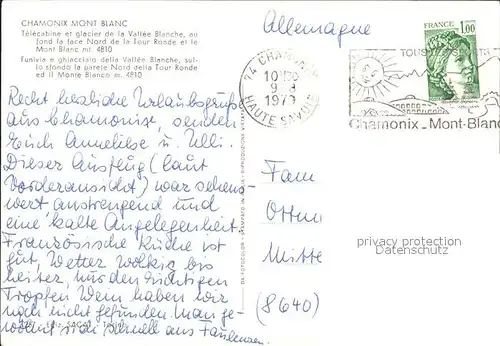 CHAMONIX MONT BLANC
Télécabine et glacier de la Vallée Blanche, au
fond la face Nord de la Tour Ronde et le
Mont Blanc mt. 4810
Funivia e ghiacciaio della Vallée Blanche, sul-
lo sfondo la parete Nord della Tour Ronde
ed il Monte Bianco m. 4810
Allemagne
FRANCE
1,00
74 CHAMONIX
10H30
9
1979
HAUTE SAVOIE
TOUS
Chamonix_Mont-Blanc
Recht herzliche Urlaubsgrüße
aus Chamonix, senden
Euch Anneliese u. Ulli.
Dieser Ausflug (laut
Vorderansicht) war sehens-
wert anstrengend und
eine kalte Angelegenheit.
Französische Küche ist
gut, Wetter wolkig bis
heiter, nur den richtigen
Tropfen Wein haben wir
noch nicht gefunden. Man ge-
wöhnt sich schnell aus Faulenzen.
Fam
Otten
Mitte
(8640)
privacy protection
Datenschutz